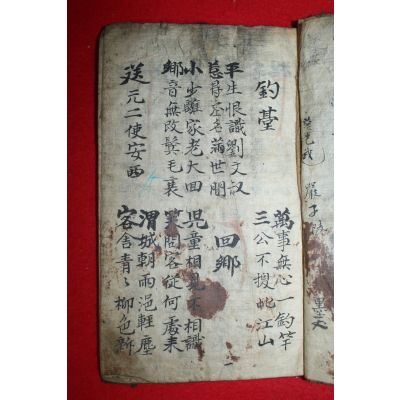 釣臺
萬事無心一釣竿
三公不換此江山
平生恨識劉文
惹得虛名滿世
回鄉
小少離家老大回
鄉音無改鬂毛衰
児童相見不相識
笑問客從何處来
送元二使安西
渭城朝雨浥輕塵
客舍青々柳色新